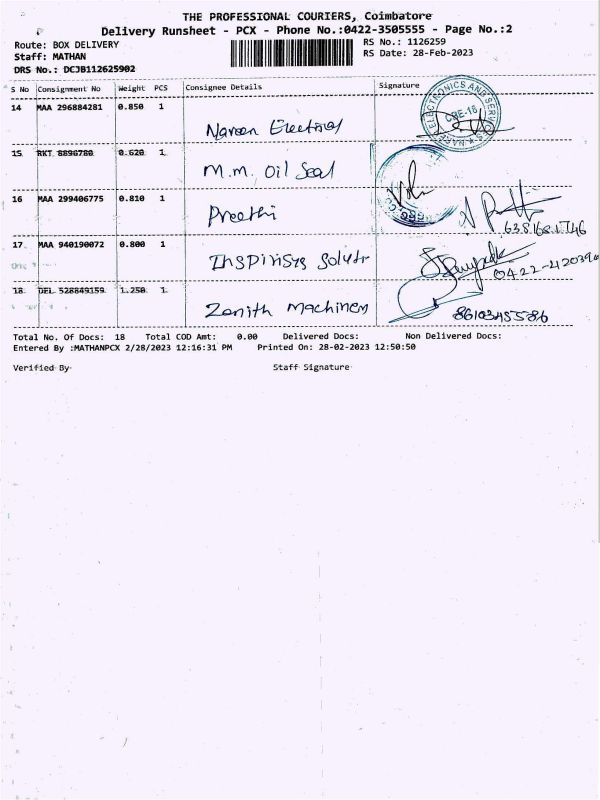 THE PROFESSIONAL COURIERS, Coimbatore
Delivery Runsheet - PCX - Phone No.:0422-3505555 - Page No.:2
Route: BOX DELIVERY
RS No.: 1126259
Staff: MATHAN
RS Date: 28-Feb-2023
DRS No.: DCJB112625902
S No Consignment No Weight PCS Consignee Details Signature
14 MAA 296884281 0.850 1
Naveen Electrical
15 RKT 8896780 0.620 1
M.M. Oil Seal
16 MAA 299406775 0.810 1
Preethi
17 MAA 940190072 0.800 1
Inspirisys Solutr
18 DEL 528849159 1.250 1
Zenith Machinery
8610345586
Total No. Of Docs: 18 Total COD Amt: 0.00 Delivered Docs: Non Delivered Docs:
Entered By :MATHANPCX 2/28/2023 12:16:31 PM Printed On: 28-02-2023 12:50:50
Verified By
Staff Signature